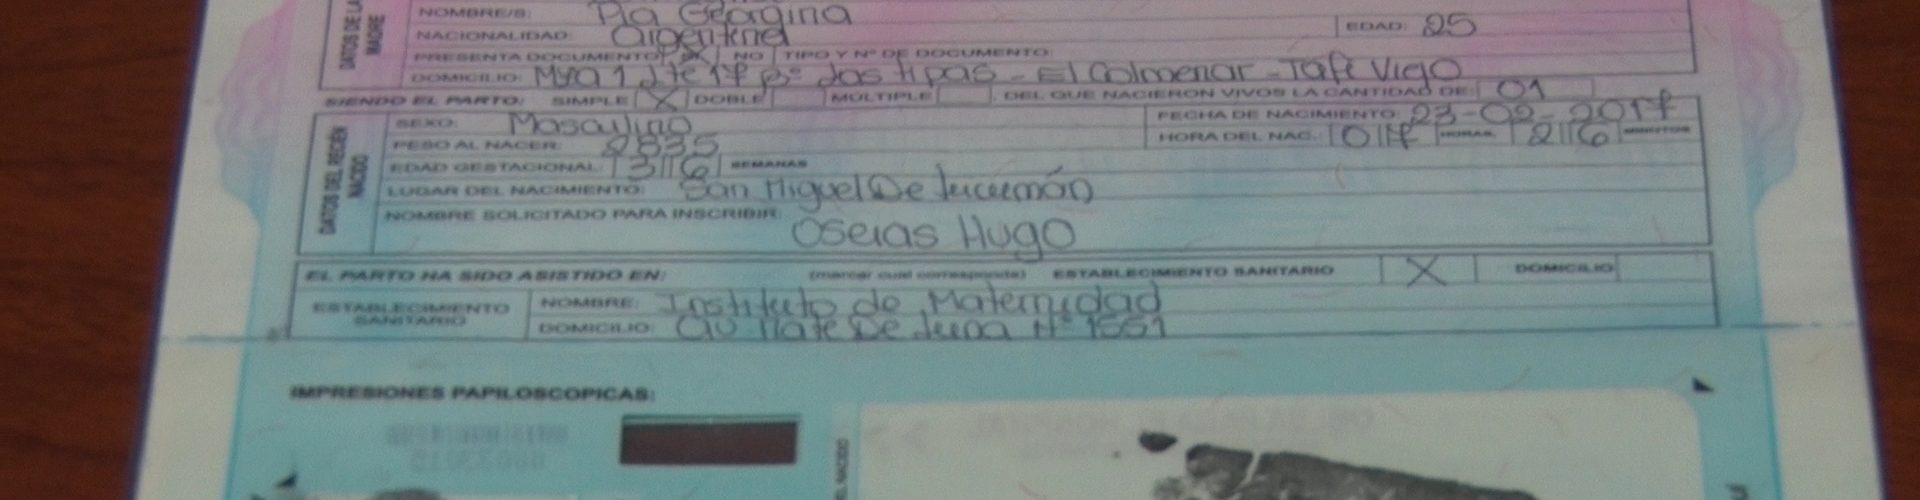 DATOS DE LA MADRE
NOMBRE/S: Pia Georgina
NACIONALIDAD: Argentina EDAD: 25
PRESENTA DOCUMENTO X NO TIPO Y Nº DE DOCUMENTO:
DOMICILIO: Mza 1 Lte 17 Bº Las tipas - El Colmenar - Tafi Viejo
SIENDO EL PARTO: SIMPLE X DOBLE MÚLTIPLE , DEL QUE NACIERON VIVOS LA CANTIDAD DE: 01
DATOS DEL RECIÉN NACIDO
SEXO: Masculino FECHA DE NACIMIENTO: 23-02-2017
PESO AL NACER: 2835 HORA DEL NAC.: 017 HORAS, 26 MINUTOS
EDAD GESTACIONAL 36 SEMANAS
LUGAR DEL NACIMIENTO: San Miguel De Tucumán
NOMBRE SOLICITADO PARA INSCRIBIR: Oseias Hugo
EL PARTO HA SIDO ASISTIDO EN: (marcar cual corresponda) ESTABLECIMIENTO SANITARIO X DOMICILIO
ESTABLECIMIENTO SANITARIO
NOMBRE: Instituto de Maternidad
DOMICILIO: av Mate De Luna Nº 1551
IMPRESIONES PAPILOSCOPICAS: